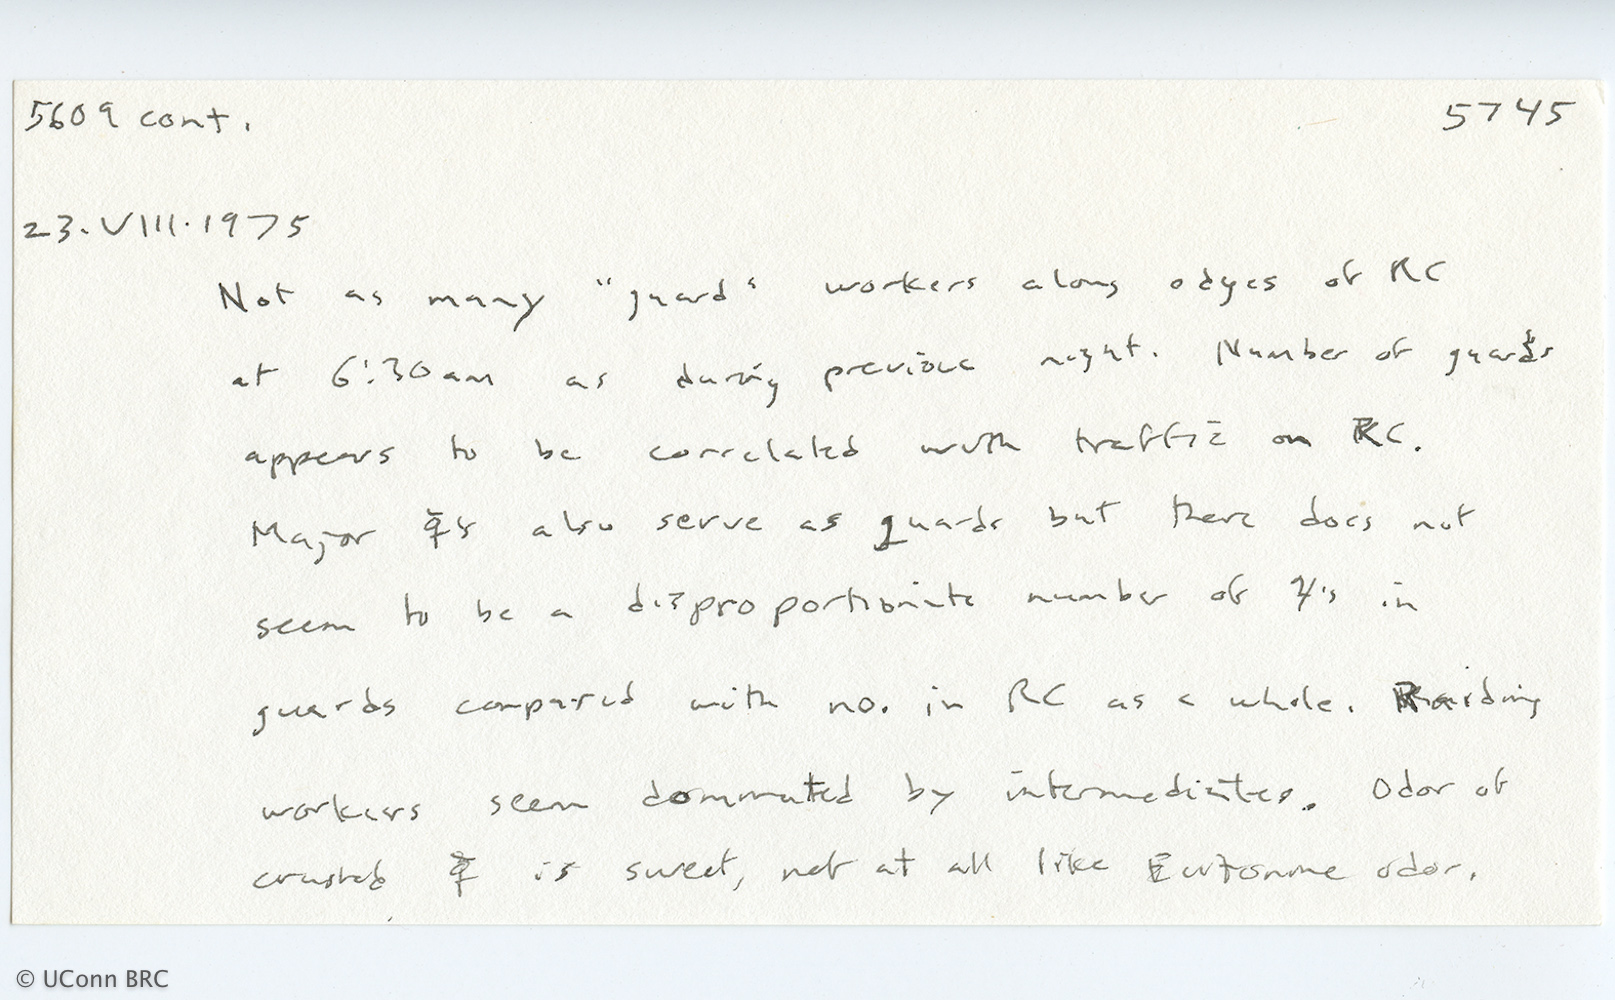 5609 cont. 5745
23.VIII.1975
Not as many "guard" workers along edges of RC
at 6:30am as during previous night. Number of guards
appears to be correlated with traffic on RC.
Major ☿s also serve as guards but there does not
seem to be a disproportionate number of 's in
guards compared with no. in RC as a whole. Raiding
workers seem dominated by intermediates. Odor of
crushed ☿ is sweet, not at all like odor.
© UConn BRC